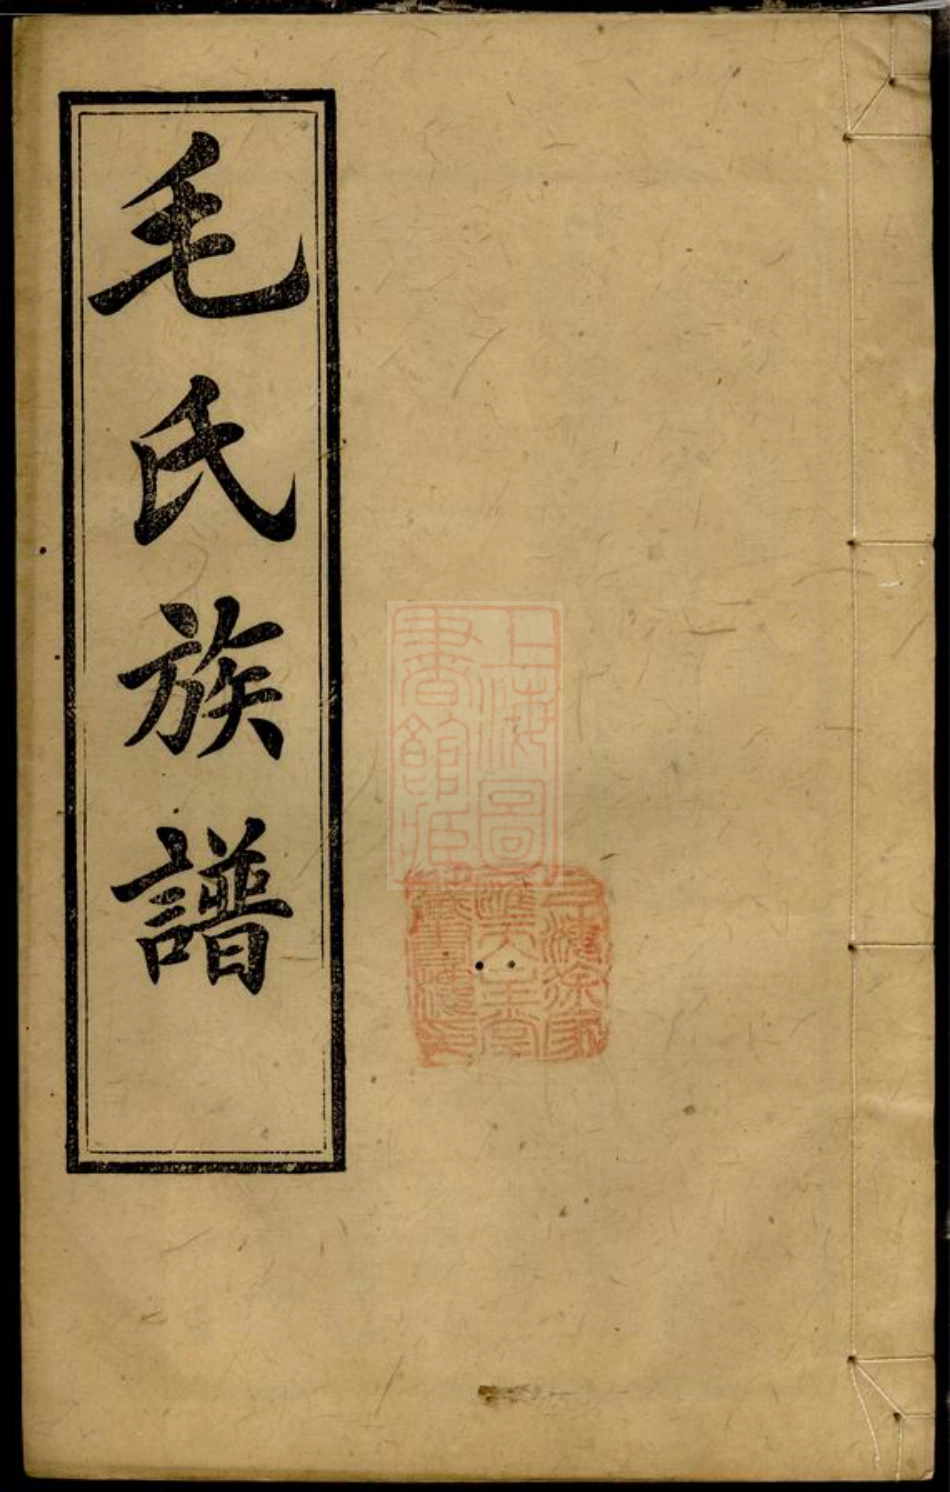 毛氏族譜
上海圖
書館藏